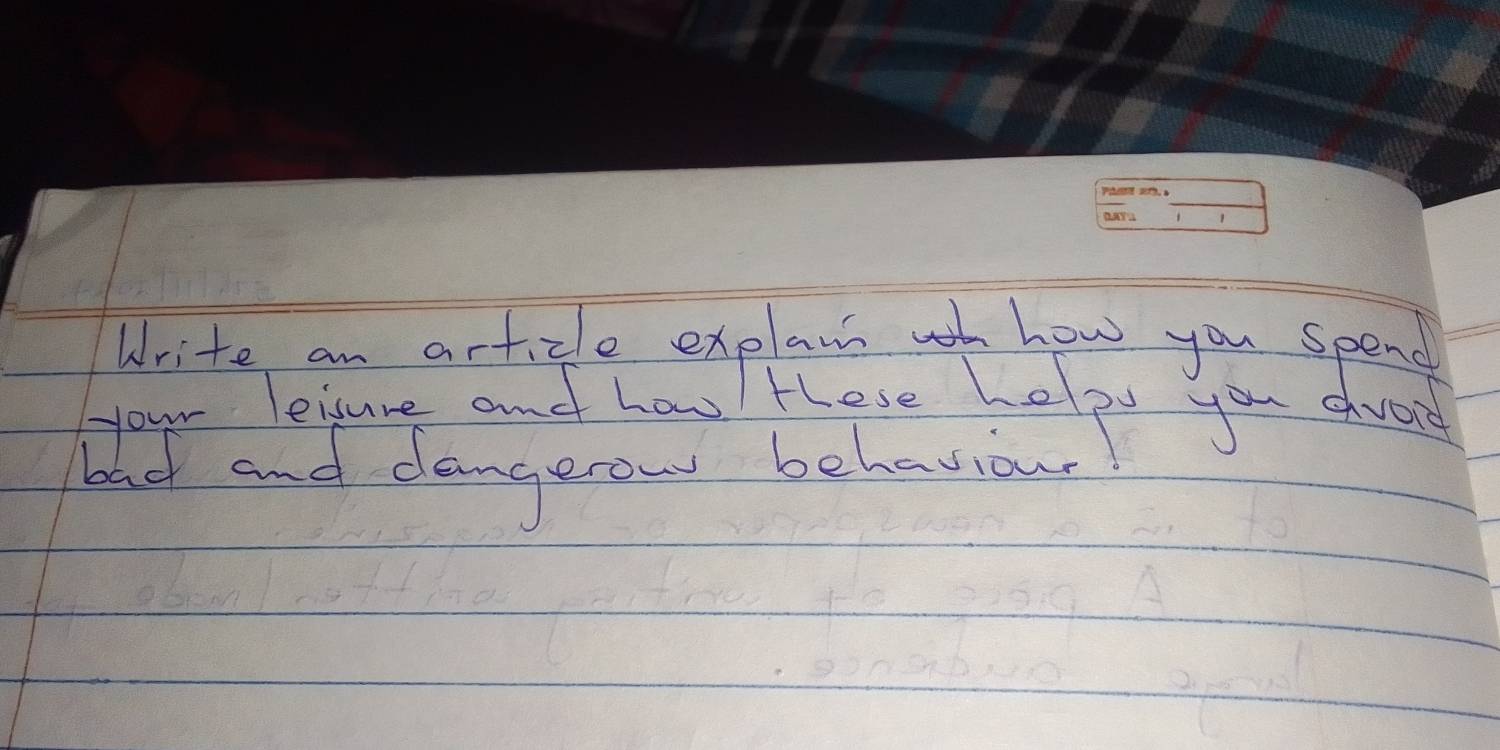 PAGE NO.:
DATE: / /
Write an article explain how you spend
your leisure and how these helps you avoid
bad and dangerous behaviour.